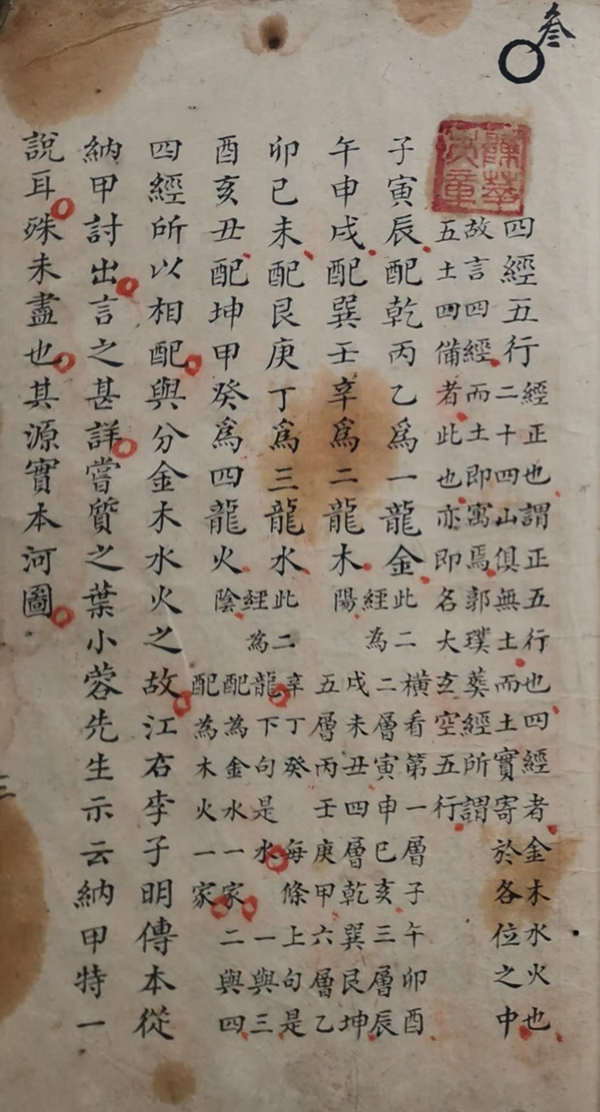 叄
四經五行
經正也謂正五行也四經者金木水火也
二十四山俱無土而土實寄於各位之中
故言四經而土即寓焉郭璞葬經所謂
五土四備者此也亦即名大玄空五行
子寅辰配乾丙乙為一龍金
午申戌配巽壬辛為二龍木
此二
經為
陽
卯巳未配艮庚丁為三龍水
酉亥丑配坤甲癸為四龍火
此二
經為
陰
橫看第一層子午卯酉
二層寅申巳亥三層辰
戌未丑四層乾巽艮坤
五層丙壬庚甲六層乙
辛丁癸 每條上句是
龍下句是水 一與三
配為金水一家 二與四
配為木火一家
四經所以相配與分金木水火之故江右李子明傳本從
納甲討出言之甚詳嘗質之葉小蓉先生示云納甲特一
說耳殊未盡也其源實本河圖